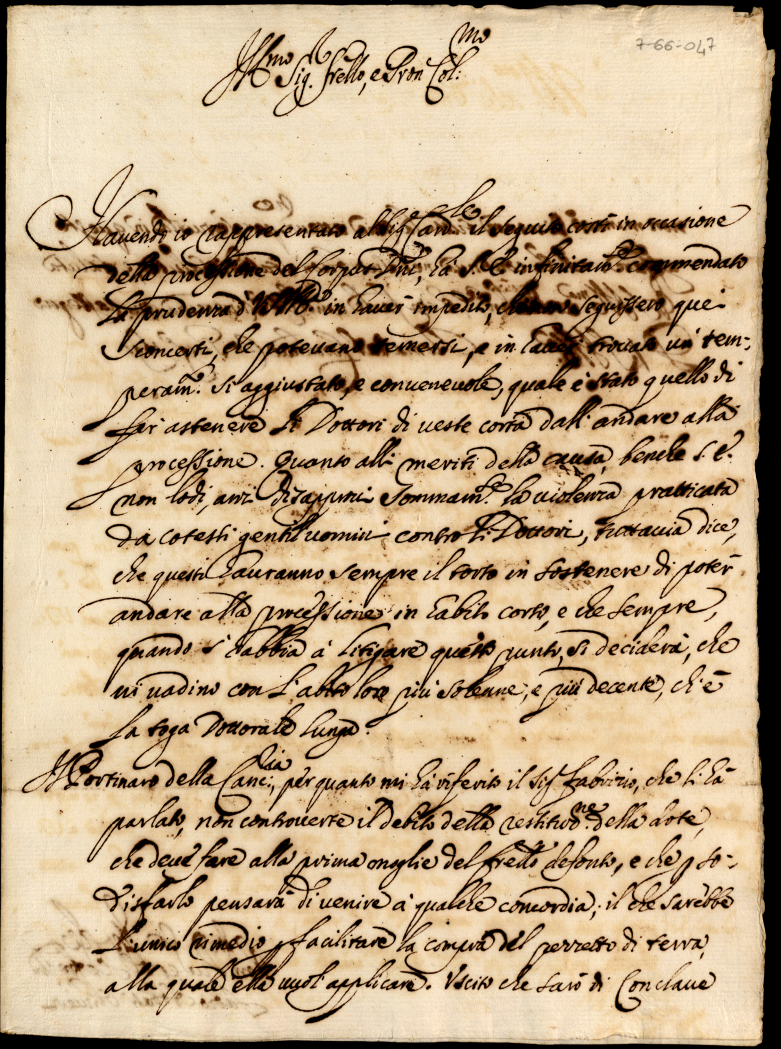 7-66-047
Ill.mo Sig. frello, e Pron Col.mo
Havendo io rappresentato all' il seguito costì in occasione
della processione del Corpus Dni, hà S. E. infinitam.te commendato
la prudenza d' V.S. Ill.ma in haver impedito, che non seguissero quei
sconcerti, che potevano temersi, e in haver trovato un tem-
peram.to sì aggiustato, e convenevole, quale è stato quello di
far' astenere li Dottori di veste corta dall' andare alla
processione. Quanto alli meriti della causa, benche S. E.
non lodi, anzi disapprovi sommam.te la violenza pratticata
da cotesti gentil'uomini contro li Dottori, tuttavia dice,
che questi hauranno sempre il torto in sostenere di poter
andare alla processione in habito corto, e che sempre,
quando s' habbia à litigare questo punto, si deciderà, che
vi vadino con l' abito loro più solenne, e più decente, ch' è
la toga Dottorale lunga.
Il Portinaro della Canc.ria, per quanto mi hà riferito il Sig.r Fabrizio, che li hà
parlato, non controverte il debito della restituo.ne della dote,
che deve fare alla prima moglie del frello defonto, e che p so-
disfarlo pensarà di venire à qualche concordia; il che sarebbe
l'unico rimedio p facilitare la compra del pezzetto di terra,
alla quale ella vuol applicare. Uscito che sarò di Conclave